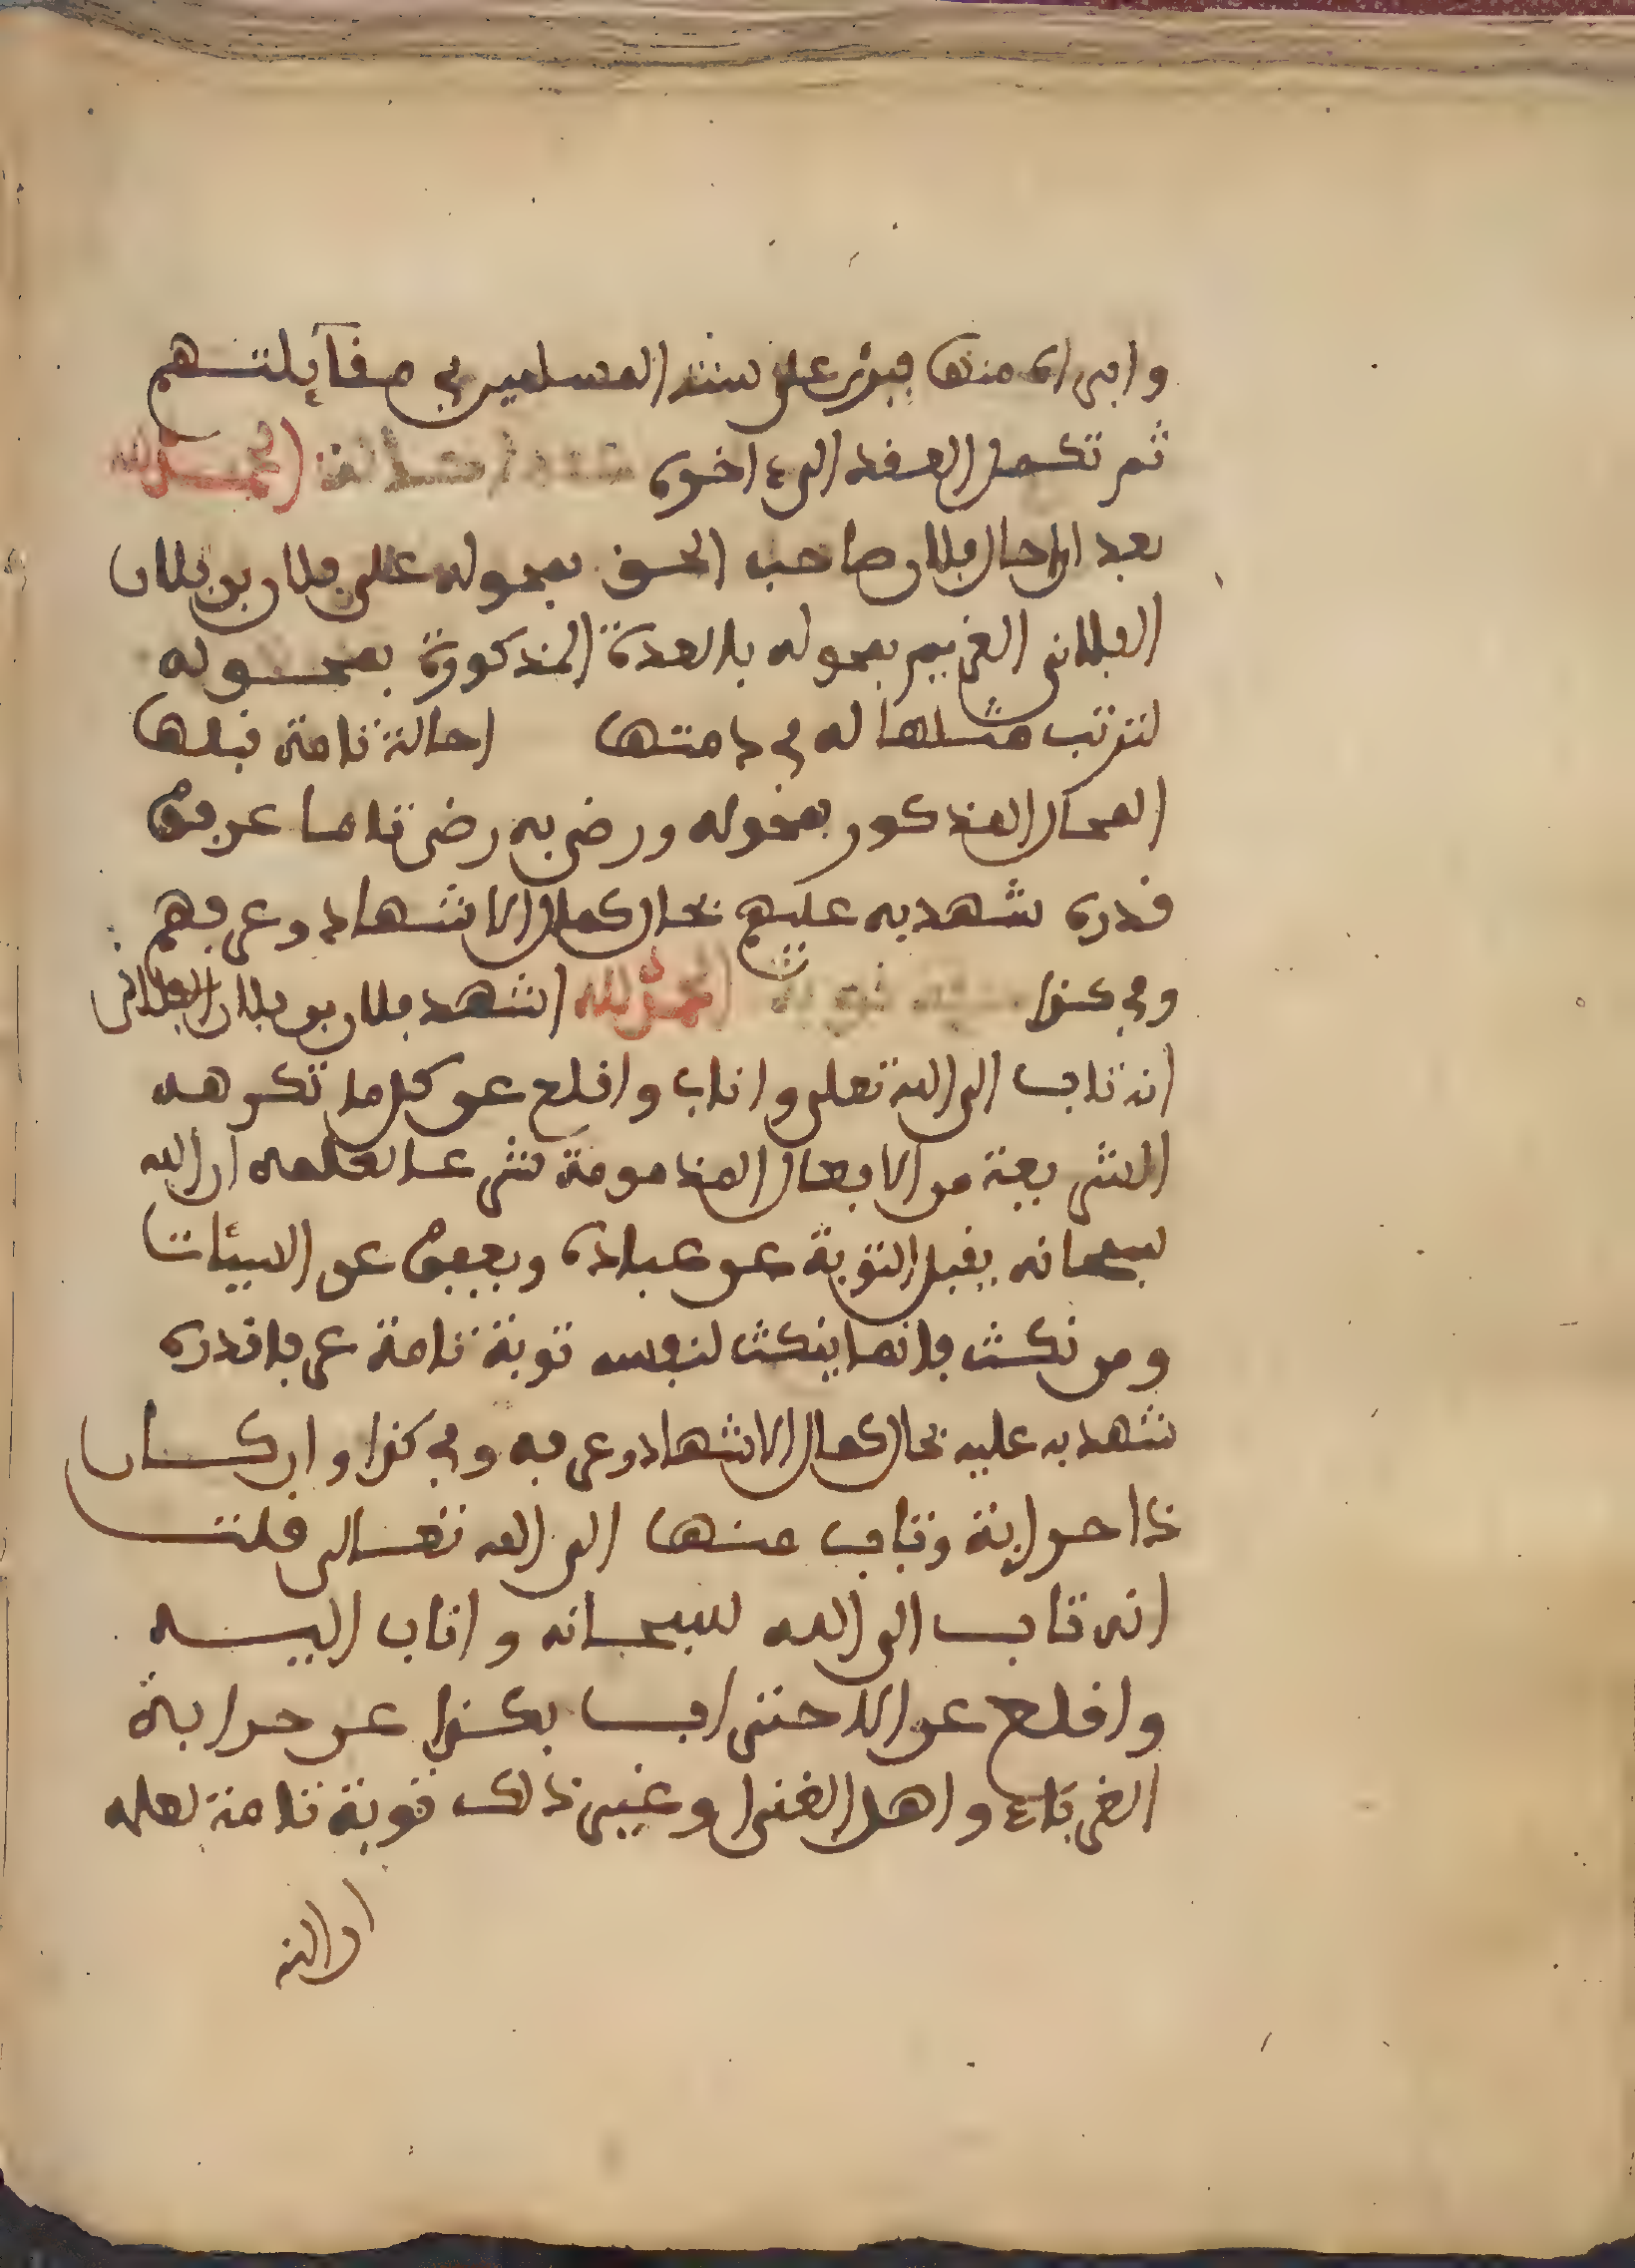 وابراه منها فبرئ على سنة المسلمين في مقايلتهم
ثم تكمل العقد الى ءاخره الحمد لله
بعد ان احال فلان صاحب الحق بمحوله على فلان بن فلان
الفلاني الغريم بمحوله بالعدة المذكورة بمحوله
لترتب مثلها له في ذمتها احالة تامة قبلها
المحال المذكور بمحوله ورضي به رضى تاما عرفوا
قدره شهد به عليهم بحال كمال الاشهاد وعرفهم
وفي كذا وثيقة توبة الحمد لله اشهد فلان بن فلان الفلاني
انه تاب الى الله تعلى واناب واقلع عن كل ما تكرهه
الشريعة من الافعال المذمومة شرعا لعلمه ان الله
سبحانه يقبل التوبة عن عباده ويعفوا عن السيئات
ومن نكث فانما ينكث لنفسه توبة تامة عرفا قدره
شهد به عليه بحال كمال الاشهاد وعرفه وفي كذا وان كان
ذا حرابة وتاب منها الى الله تعالى قلت
انه تاب الى الله سبحانه واناب اليه
واقلع عن الاحتراف بكذا عن حرابة
الغرباء واهل الغنى وغير ذلك توبة تامة لعلمه
ان الله